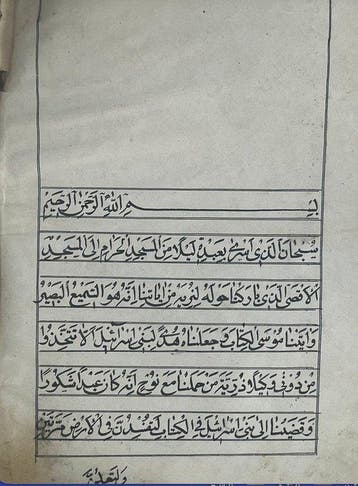 بسم الله الرحمن الرحيم
سبحان الذي اسرى بعبده ليلا من المسجد الحرام الى المسجد
الاقصى الذي باركنا حوله لنريه من اياتنا انه هو السميع البصير
واتينا موسى الكتاب وجعلناه هدى لبنى اسرائيل الا تتخذوا
من دونى وكيلا ذرية من حملنا مع نوح انه كان عبدا شكورا
وقضينا الى بنى اسرائيل في الكتاب لتفسدن في الارض مرتين
ولتعلن